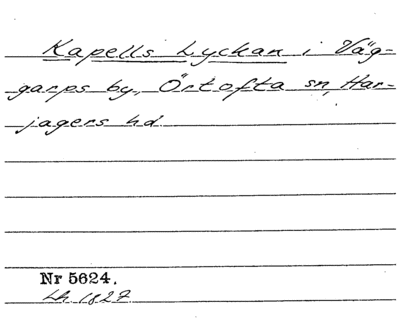 Kapells Lyckan i Väg-
garps by, Örtofta sn, Har-
jagers hd
Nr 5624.
Lh. 1827